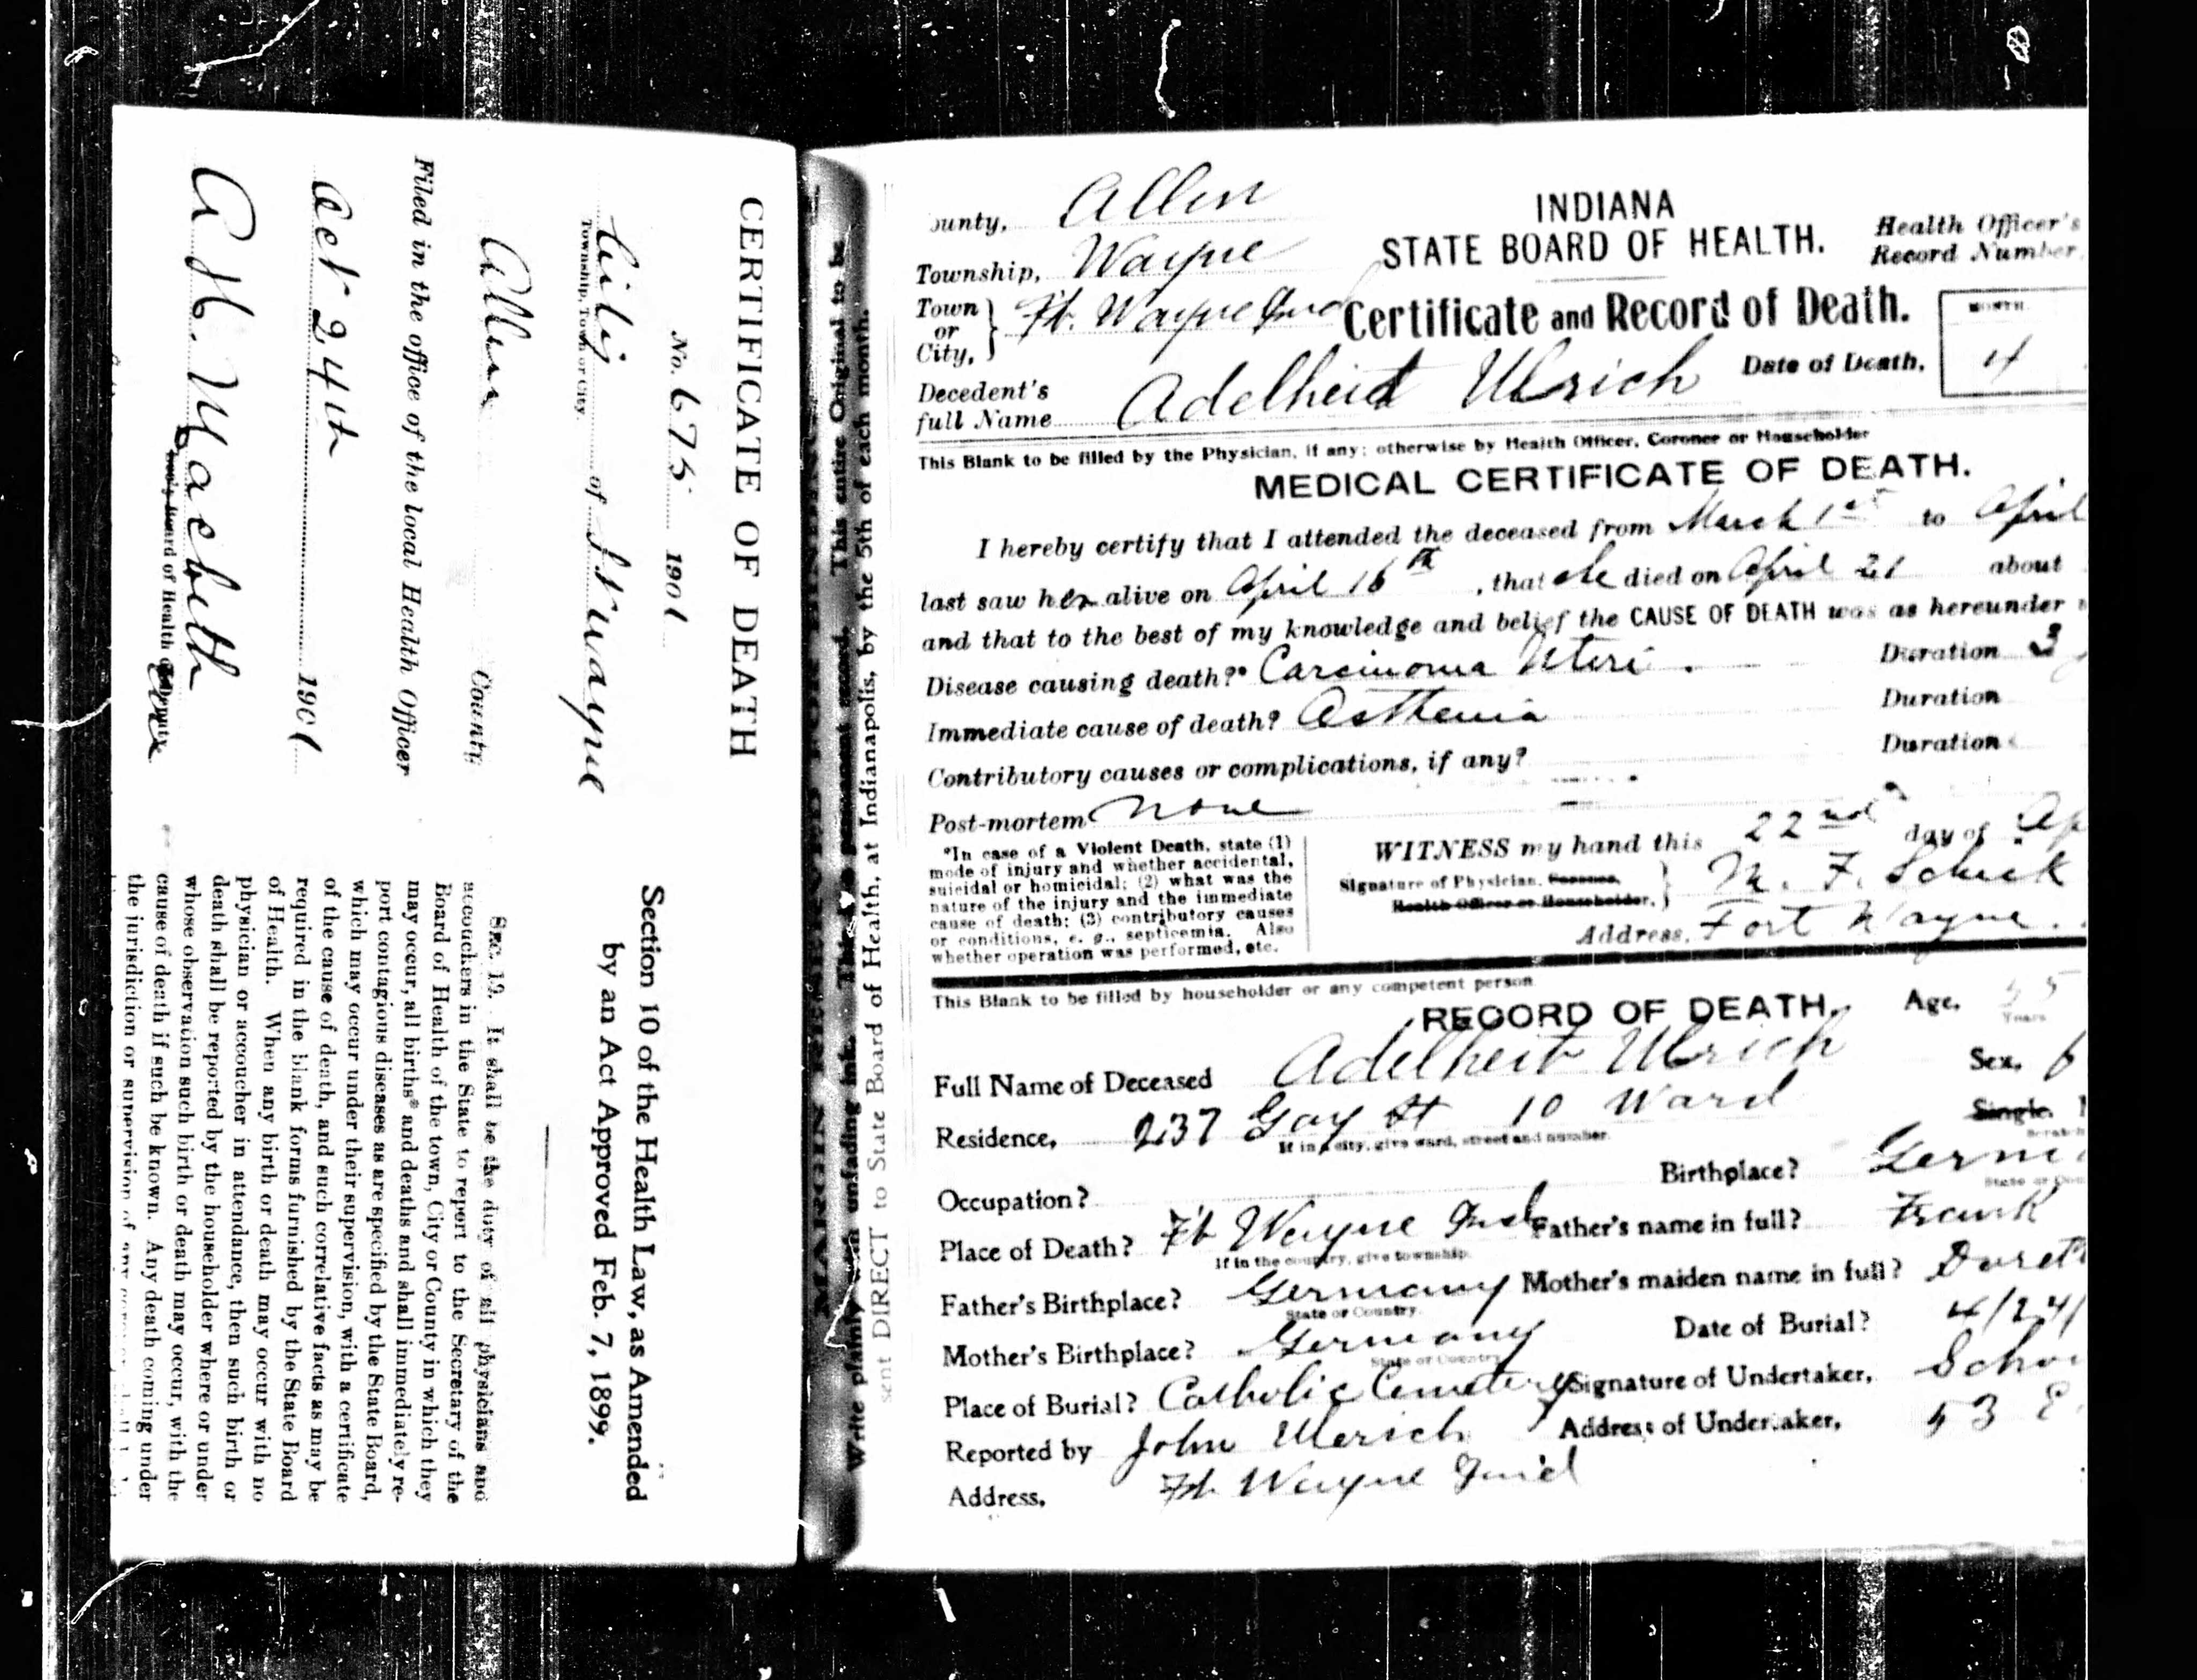 CERTIFICATE OF DEATH
No. 675 1901
City of Ft Wayne
Township, Town or City
Allen County
Filed in the office of the local Health Officer
Oct 24th 1901
A H. Macbeth
Board of Health Deputy
Section 10 of the Health Law, as Amended
by an Act Approved Feb. 7, 1899.
SEC. 10. It shall be the duty of all physicians and
accouchers in the State to report to the Secretary of the
Board of Health of the town, City or County in which they
may occur, all births* and deaths and shall immediately re-
port contagious diseases as are specified by the State Board,
which may occur under their supervision, with a certificate
of the cause of death, and such correlative facts as may be
required in the blank forms furnished by the State Board
of Health. When any birth or death may occur with no
physician or accoucher in attendance, then such birth or
death shall be reported by the householder where or under
whose observation such birth or death may occur, with the
cause of death if such be known. Any death coming under
the jurisdiction or supervision of any
MARGIN RESERVED FOR BINDING
Write plainly with unfading ink. This is a permanent record. This entire Original to be
sent DIRECT to State Board of Health, at Indianapolis, by the 5th of each month.
ounty, Allen
Township, Wayne
Town or City, Ft. Wayne Ind
INDIANA
STATE BOARD OF HEALTH.
Health Officer's
Record Number
Certificate and Record of Death.
MONTH
Date of Death, 4
Decedent's
full Name Adelheid Ulrich
This Blank to be filled by the Physician, if any; otherwise by Health Officer, Coroner or Householder
MEDICAL CERTIFICATE OF DEATH.
I hereby certify that I attended the deceased from March 1st to April
last saw her alive on April 16th, that she died on April 21 about
and that to the best of my knowledge and belief the CAUSE OF DEATH was as hereunder
Disease causing death?* Carcinoma Uteri. Duration 3
Immediate cause of death? Asthenia Duration
Contributory causes or complications, if any? Duration
Post-mortem None
*In case of a Violent Death, state (1)
mode of injury and whether accidental,
suicidal or homicidal; (2) what was the
nature of the injury and the immediate
cause of death; (3) contributory causes
or conditions, e. g., septicemia. Also
whether operation was performed, etc.
WITNESS my hand this 22nd day of Ap
Signature of Physician, Coroner, M. F. Schick
Health Officer or Householder,
Address, Fort Wayne.
This Blank to be filled by householder or any competent person
RECORD OF DEATH. Age, 55
Years
Full Name of Deceased Adelheit Ulrich Sex, f
Residence, 237 Gay St 10 Ward Single.
If in a city, give ward, street and number.
Occupation? Birthplace? Germ
Place of Death? Ft Wayne Ind Father's name in full? Frank
If in the country, give township.
Father's Birthplace? Germany Mother's maiden name in full? Doret
State or Country.
Mother's Birthplace? Germany Date of Burial? 4/24/
State or Country
Place of Burial? Catholic Cemetery Signature of Undertaker, Scho
Reported by John Ulerich Address of Undertaker, 53 E.
Address, Ft. Wayne Ind